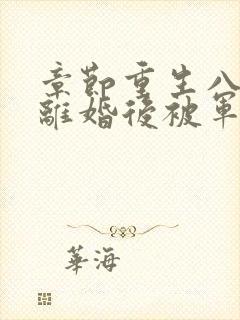 章節重生八
離婚後被軍
華海